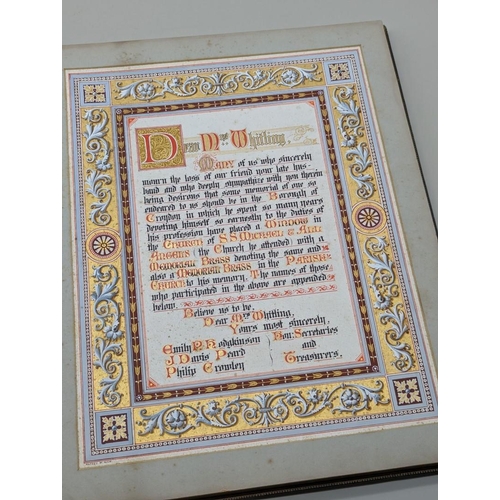 Dear Mrs. Whitling,
Many of us who sincerely
mourn the loss of our friend your late hus-
band and who deeply sympathise with you therein
being desirous that some memorial of one so
endeared to us should be in the Borough of
Croydon in which he spent so many years
devoting himself so earnestly to the duties of
his profession have placed a Window in
the Church of S.S Michael & All
Angels (the Church he attended) with a
Memorial Brass denoting the same and
also a Memorial Brass in the Parish
Church to his memory. The names of those
who participated in the above are appended
below.
Believe us to be,
Dear Mrs. Whitling,
Yours most sincerely,
Emily P. Hodgkinson Hon: Secretaries
J. Davis Peard and
Philip Crowley Treasurers.